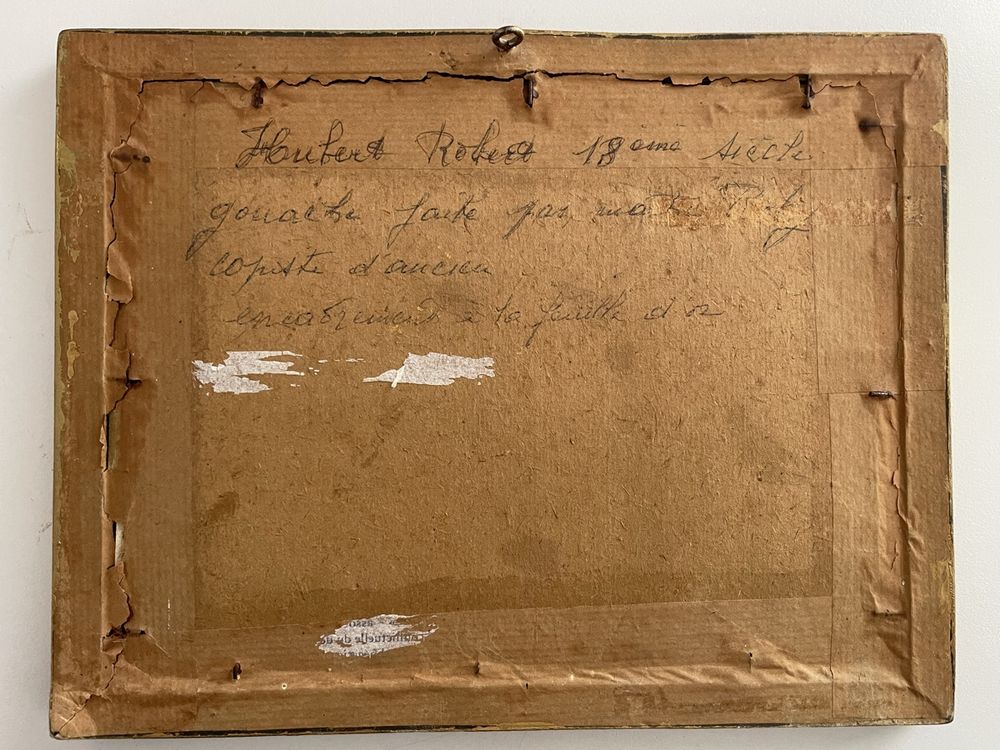 Hubert Robert 18ème siècle
gouache faite par
copiste d'ancien
encadrement à la feuille d'or